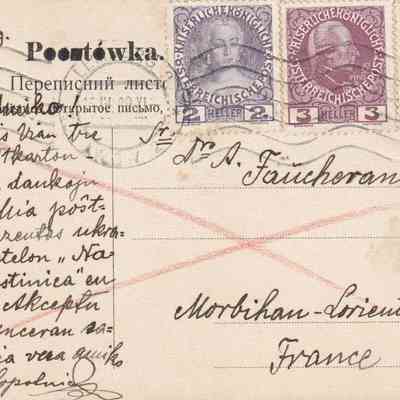 Pocztówka.
Переписний листо
открытое письмо,
KAISERLICHE KÖNIGLICHE
ÖSTERREICHISCHE POST
2 HELLER 2
KAISERLICHE KÖNIGLICHE
ÖSTERREICHISCHE POST
3 HELLER 3
is Vian tre
tkarton-
dankojn
Mia poŝt-
rezentas ukra-
telon „Na
stinica" en
Akceptu
enceran sa-
ia vera amiko
opolnic
Sr.
Dr A. Faucheran
Morbihan-Lorien
France